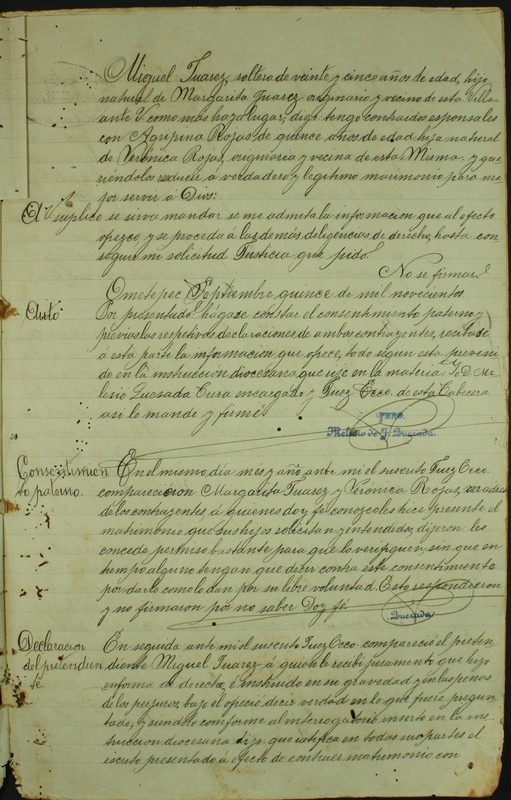 Miguel Juarez, soltero de veinte y cinco años de edad, hijo
natural de Margarita Juarez originario y vecino de esta Villa
ante V. como mas haya lugar, digo: tengo contraidos esponsales
con Agrepina Rojas de quince años de edad hija natural
de Veronica Rojas, originaria y vecina de esta Misma, y que
riéndolos reducir á verdadero y legítimo matrimonio para me
jor servir á Dios:
A V. suplico se sirva mandar se me admita la informacion que al efecto
ofrezco y se proceda á las demás deligencias de derecho, hasta con
seguir mi solicitud Justicia que pido.
No se firmar.
Ometepec Septiembre quince de mil novecientos
Auto
Por presentado: hágase constar el consentimiento paterno y
previas las respetivas declaraciones de ambos contrayentes, recíbase
á esta parte la informacion que ofrece, todo segun esta preveni
do en la instruccion diocesana que rije en la materia. Yo D. Me
lesio Quesada Cura encargado y Juez Ecco. de esta Cabecera
asi lo mandé y firmé.
PBRO.
Melesio de J. Quezada
Consentimien
to paterno.
En el mismo dia mes y año, ante mi el suscrito Juez Ecco.
comparecieron Margarita Juarez y Veronica Rojas,
de los contrayentes á quienes doy fé conozco les hice presente el
matrimonio que sus hijos solicitan y entendidos, dijeron: les
concede permiso bastante para que lo verifiquen, sin que en
tiempo alguno tengan que decir contra este consentimiento
por darlo como lo dan por su libre voluntad. Esto respondieron
y no firmaron por no saber Doy fé
Quezada
Declaracion
del pretendien
te.
En seguida ante mi el suscrito Juez Ecco. compareció el preten
diente Miguel Juarez á quien le recibi juramento que hizo
en forma de derecho, é instruido en su gravedad y en las penas
de los perjuros, bajo él ofreció decir verdad en lo que fuere pregun
tado, y siendolo conforme al interrogatorio inserto en la ins
truccion diocesana dijo: que ratifica en todas sus partes el
escrito presentado á efecto de contraer matrimonio con